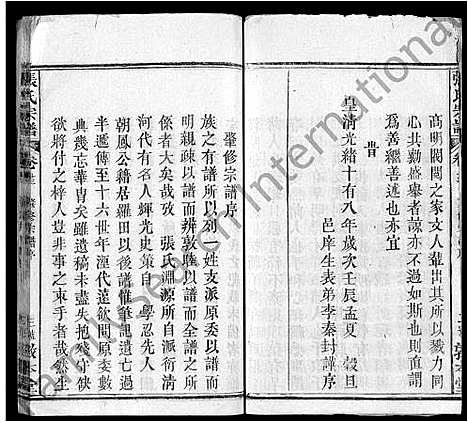 高明閥閱之家文人輩出其所以戮力同
心共勷盛舉者諒亦不過如斯也則直謂
為善繼善述也亦宜
旹
皇清光緒十有八年歲次壬辰孟夏 穀旦
邑庠生表弟李秦封謹序
肇修宗譜序
族之有譜所以列一姓支派原委以譜而
明親疎以譜而辨敦睦以譜而全譜之所
係者大矣哉攷 張氏淵源所自派衍清
河代有名人輝光史策自一學忍先人
朝鳳公籍居羅田以後譜催筆記遺亡過
半遞傳至十六世年湮代遠欽聞原委數
典幾忘華冑矣雖遺稿未盡失抱殘守缺
欲將付之梓人豈非事之束手者哉然生
張氏宗譜
卷首
肇修宗譜序
敦本堂
FamilySearch International